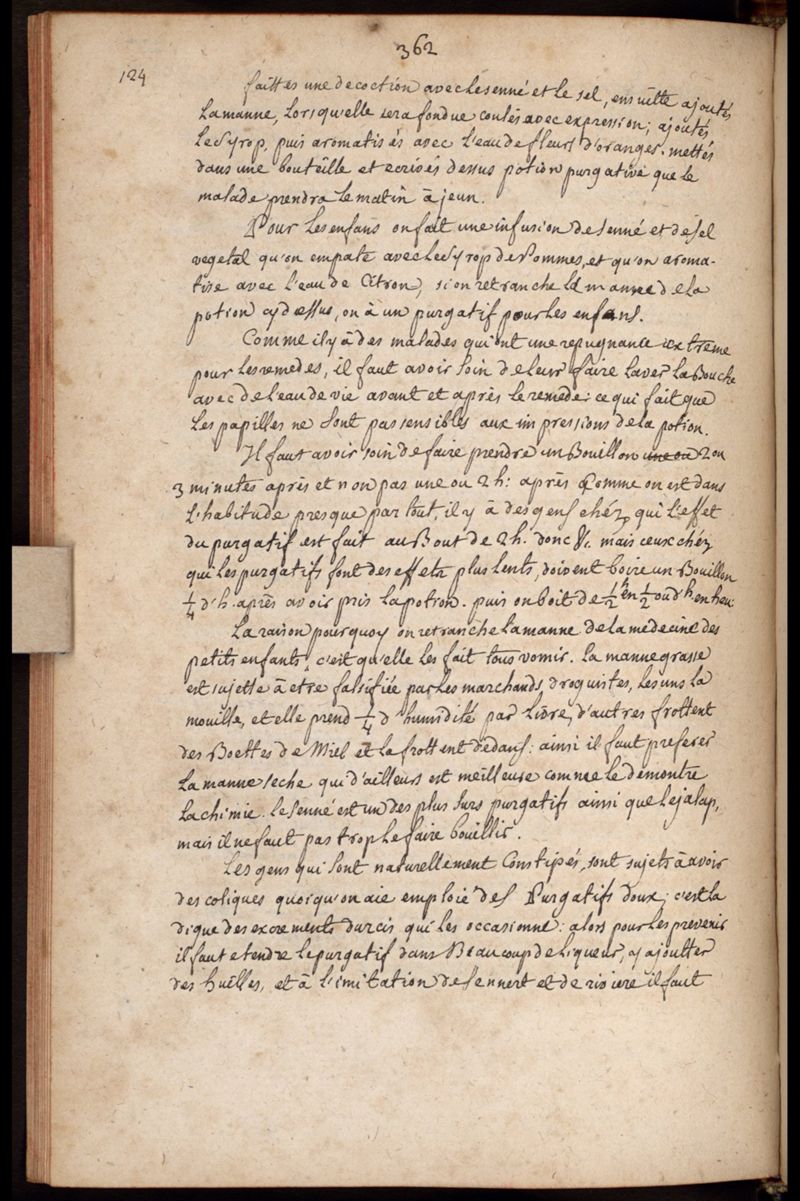 362
124
faittes une decoction avec le senné et le sel, ensuitte ajoutés
la manne, lorsqu'elle sera fondue coulés avec expression; ajoutés
le syrop, puis aromatisés avec l'eau de fleurs d'oranges. mettés
dans une bouteille et ecrivés dessus potion purgative que le
malade prendra le matin à jeun.
Pour les enfans on fait une infusion de senné et de sel
vegetal qu'on empate avec le syrop de Pommes, et qu'on aroma-
tise avec l'eau de Citron, si on retranche la manne de la
potion cy dessus, on à un purgatif pour les enfans.
Comme il y à des malades qui ont une repugnance extrême
pour les remedes, il faut avoir soin de leur faire laver la Bouche
avec de l'eau de vie avant et après le remede: ce qui fait que
les papilles ne sont pas sensibles aux impressions de la potion.
Il faut avoir soin de faire prendre un Bouillon une ou 2 ou
3 minutes après et non pas une ou 2 h: après comme on est dans
l'habitude presque par tout, il y à des gens chéz qui l'effet
du purgatif est fait au Bout de 2 h. donc &c. mais ceux chéz
qui les purgatifs font des effets plus lents, doivent boire un Bouillon
1/4 d'h. après avoir pris la potion. puis on boit de 1/2 h en 1/2 ou d'h en heu:
La raison pourquoy on retranche la manne de la medecine des
petits enfants, c'est qu'elle les fait tous vomir. la manne grasse
est sujette à etre falsifiée par les marchands droguistes, les uns la
mouille, et elle prend 1/4 d'humidité par Livre, d'autres frottent
des Boettes de Miel et la frottent dedans: ainsi il faut preferer
la manne seche qui d'ailleurs est meilleure comme le demontre
la chimie. le senné est un des plus surs purgatifs ainsi que le jalap,
mais il ne faut pas trop le faire bouillir.
Les gens qui sont naturellement Constipés, sont sujets à avoir
des coliques quoiqu'on aie emploié des Purgatifs doux; c'est la
digue des excrements durcis qui les occasionne: alors pour les prevenir
il faut etendre le purgatif dans Beaucoup de liqueur, y ajoutter
des huilles, et à l'imitation de sennert et de riviere il faut